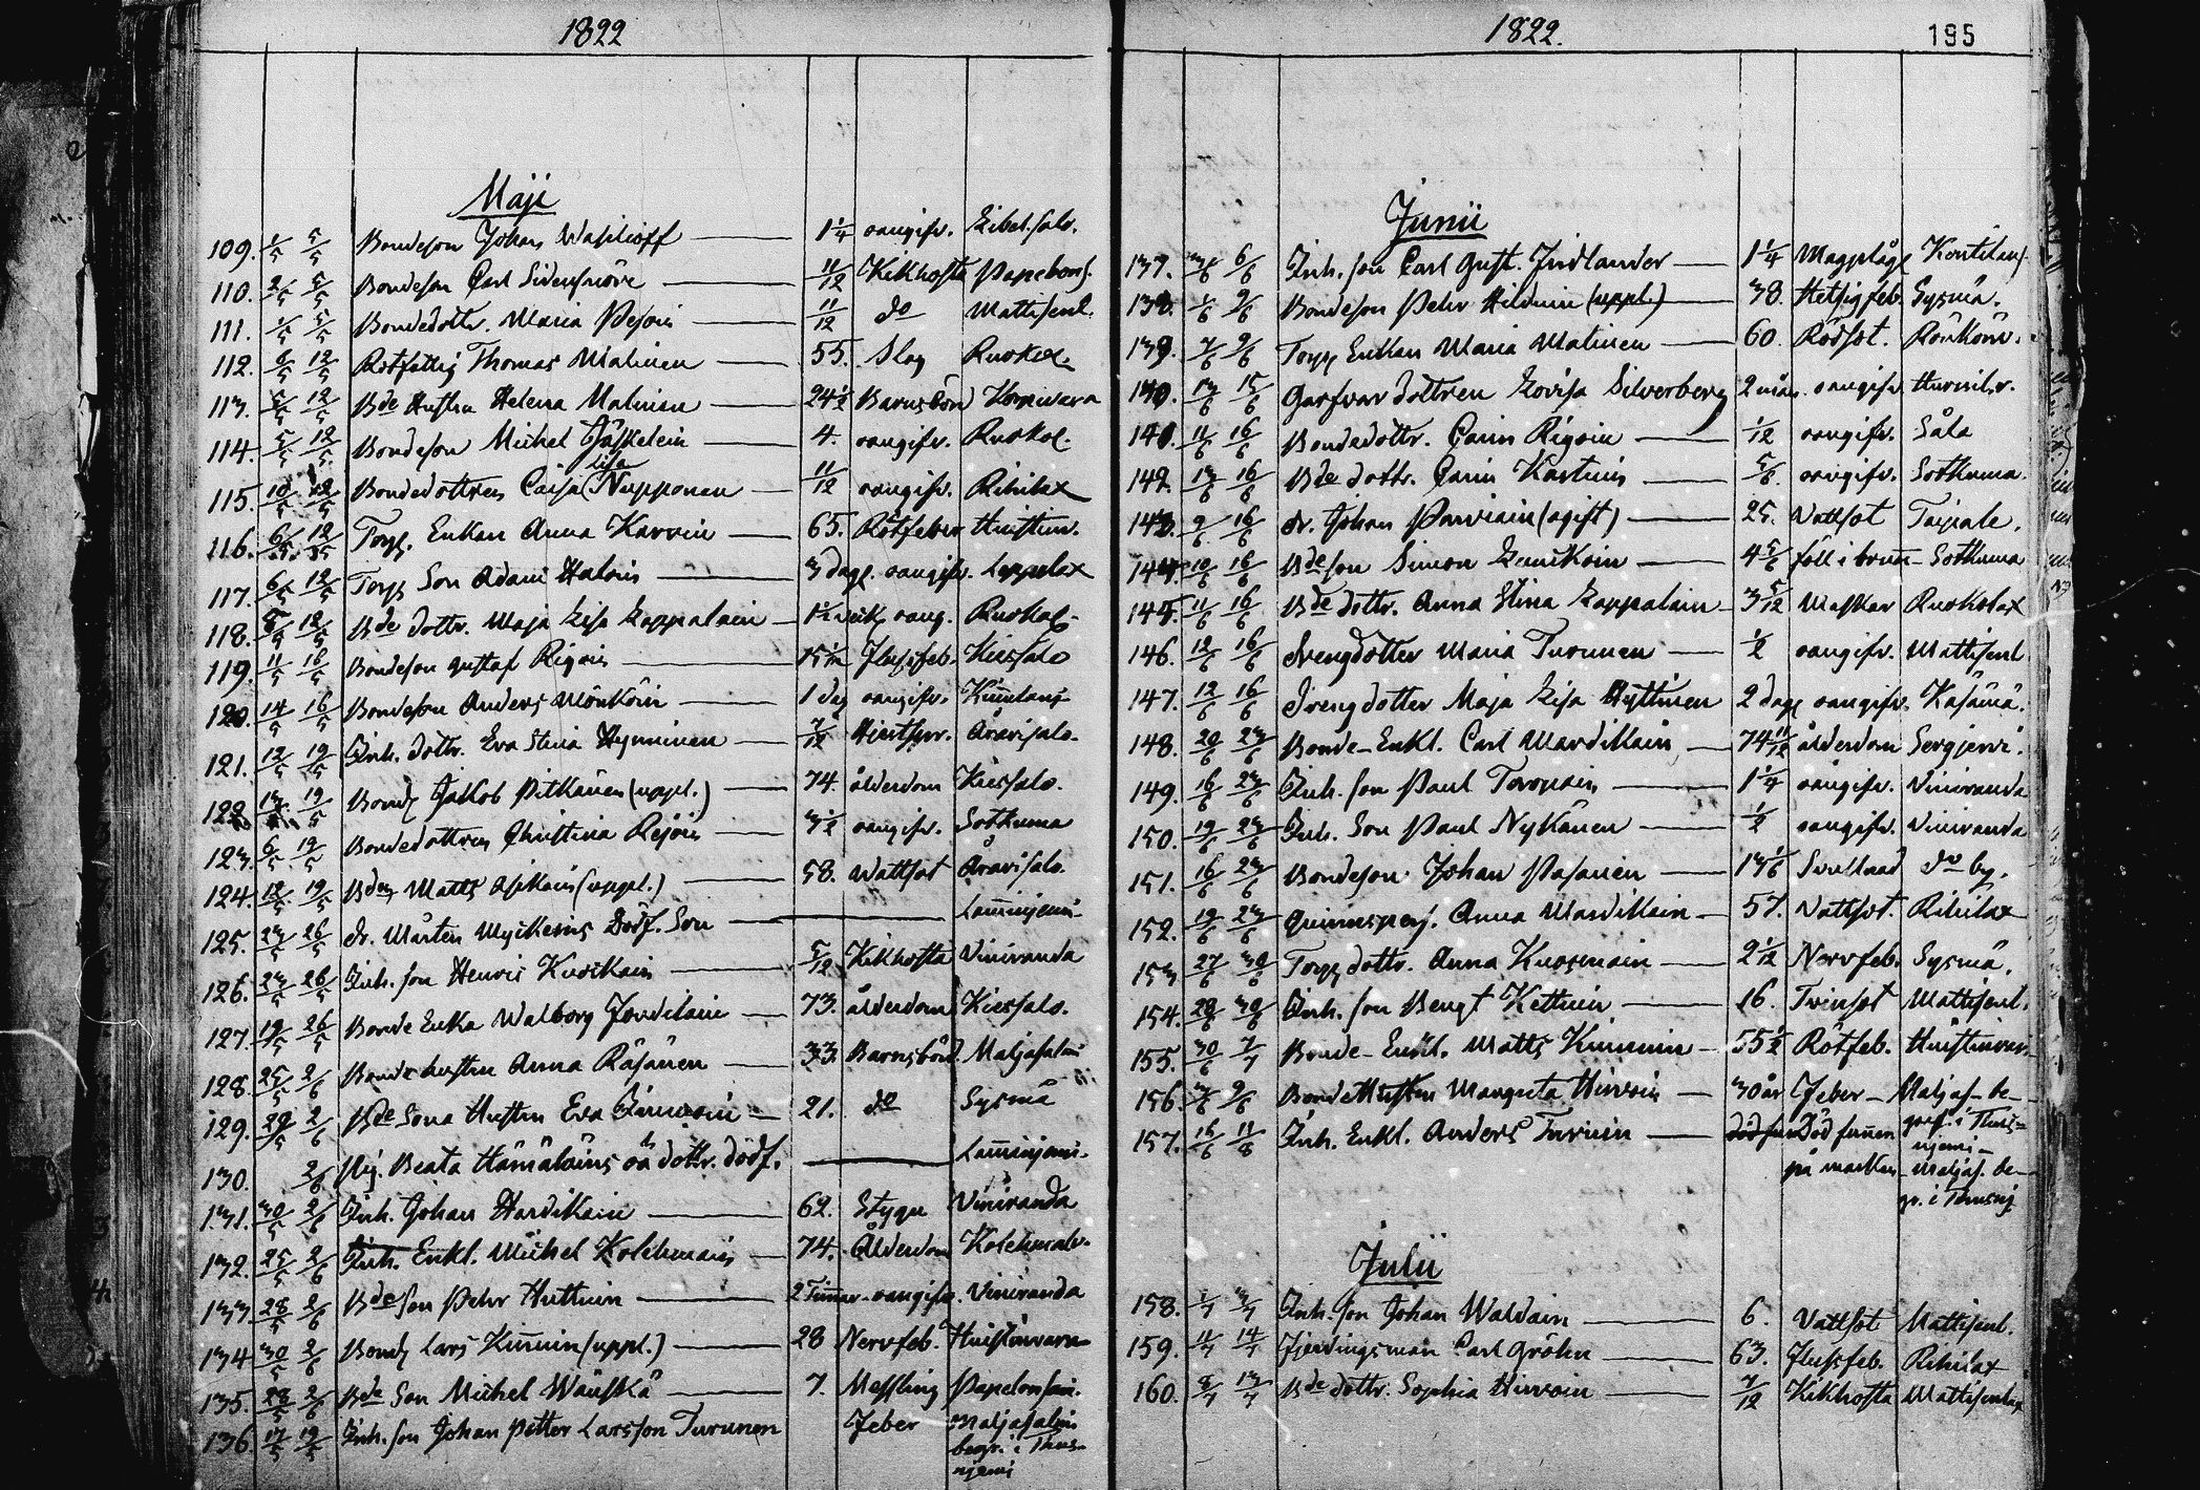 1822
Maji
109. 1/5 5/5 Bondeson Johan Wasilioff 1 1/4 oangifv. Libel.salo.
110. 2/5 5/5 Bondeson Carl Sidensnöre 11/12 Kikhosta Papelons.
111. 1/5 5/5 Bondedottr. Maria Pesoin 11/12 do Mattisenl.
112. 8/5 12/5 Rotfattig Thomas Malinen 55. Slag Ruokol.
113. 5/5 12/5 Bde Hustru Helena Malinen 24 1/2 Barnsbörd Kornivara
114. 5/5 12/5 Bondeson Michel Jäskelein 4. oangifv. Ruokol.
115. 10/5 12/5 Bondedottren Caisa Lisa Nupponen 11/12 oangifv. Rihilax
116. 6/5 12/5 Torp. Enkan Anna Karvin 65. Rötfeber Huistinv.
117. 6/5 12/5 Torp Son Adam Haloin 3 dag. oangifv. Leppälax
118. 8/5 12/5 Bde dottr. Maja Lisa Lappalain oang. Ruokol.
119. 11/5 16/5 Bondeson Gustaf Rigoin 15 1/12 Flussfeb. Kiessalo
120. 14/5 16/5 Bondeson Anders Mönköin 1 dag oangifv. Kinnlans
121. 12/5 19/5 Inh. dottr. Eva Stina Hynninen 7/12 Hjertspr. Åravisalo.
122. 13/5 19/5 Bond Jakob Pitkänen (uppl.) 74. ålderdom Kiessalo.
123. 6/5 19/5 Bondedottren Christina Rejoin 3 1/2 oangifv. Sotkuma
124. 12/5 19/5 Bdn Matts Asikain (uppl.) 58. Wattsot Åravisalo.
125. 23/5 26/5 dr. Mårten Myckeins Dödf. Son Lamminjemi
126. 23/5 26/5 Inh. son Henric Kuoikain 5/12 Kikhosta Viniranda
127. 19/5 26/5 Bonde Enka Walborg Jordilain 73. ålderdom Kiessalo.
128. 25/5 2/6 Bonde hustru Anna Räsänen 33. Barnsbörd Maljasalmi
129. 29/5 2/6 Bde Sons Hustru Eva 21. do Sysmä
130. 2/6 Pig. Beata Hämäläins oä dottr. dödf. Lamminjemi.
131. 30/5 2/6 Inh. Johan Hardikain 62. Stygn Viniranda
132. 25/5 2/6 Inh. Enkl. Michel Kolehmain 74. Ålderdom Kolehmalv.
133. 28/5 2/6 Bde son Pehr Huttuin 2 Timmar oangifv. Viniranda
134 30/5 2/6 Bond Lars Kinnin (uppl.) 28 Nervfeb. Huistinvara
135. 28/5 2/6 Bde Son Michel Wänskä 7. Messling Papelonsain.
136. 17/5 19/5 Inh. son Johan Petter Larsson Turunen Feber Maljasalmi
begr. i Thus-
njemi
1822.
195
Junii
137. 3/6 6/6 Inh. son Carl Gust. Jndlander 1 1/4 Magplåg Kontilans.
138. 1/6 9/6 Bondeson Pehr Hilduin (uppl.) 38. Hetsigfeb. Sysmä.
139. 7/6 9/6 Torp Enkan Maria Malinen 60. Rödsot. Rönkönv.
140. 13/6 15/6 Garfvar dottren Lovisa Silverberg 2 mån. oangifv
141. 11/6 16/6 Bondedottr. Carin Rigoin 1/12 oangifv. Såla
142. 13/6 16/6 Bde dottr. Carin Kastuin 5/6. oangifv. Sotkuma.
143. 9/6 16/6 dr. Johan Parviain (ogift) 25. Vattsot Taipale.
144. 10/6 16/6 Bde son Simon 4 5/6 föll i brunn Sotkuma
145. 11/6 16/6 Bde dottr. Anna Stina Lappalain 3 5/12 Maskar Ruokolax
146. 12/6 16/6 Drengdotter Maria Turunen 1/2 oangifv. Mattisenl
147. 12/6 16/6 Drengdotter Maja Lisa Hyttinen 2 dag oangifv. Kasämä.
148. 20/6 23/6 Bonde-Enkl. Carl Mardikain 74 11/12 ålderdom Sergjervi.
149. 16/6 23/6 Inh. son Paul Toropain 1 1/4 oångifv. Viniranda
150. 19/6 23/6 Inh. Son Paul Nykänen 1/2 oangifv. Viniranda
151. 16/6 23/6 Bondeson Johan Pasanen 13 1/6 Svullnad do by.
152. 19/6 23/6 Quinnspers. Anna Mardikain 57. Vattsot. Rihilax
153 27/6 30/6 Torp dottr. Anna Kuosmain 2 1/12 Nervfeb. Sysmä.
154. 28/6 30/6 Inh. son Bengt Kettuin 16. Tvinsot Mattisenl.
155. 30/6 7/7 Bonde-Enkl. Matts Kinnuin 55 1/2 Rötfeb. Huistinvar.
156. 3/6 9/6 Bonde Hustru Margreta Hirvoin 30 år Feber Maljas- be-
157. 16/6 11/8 Inh. Enkl. Anders Turuin Död funnen graf. i Thus-
njemi-
på marken Maljas. be-
gr. i Thusnj
Julii
158. 1/7 3/7 Inh. son Johan Waldain 6. Vattsot Mattisenl.
159. 11/7 14/7 Fjerdingsman Carl Gröhn 63. Flussfeb. Rihilax
160. 8/7 13/7 Bde dottr. Sophia Hirvoin 7/12 Kikhosta Mattisenlax